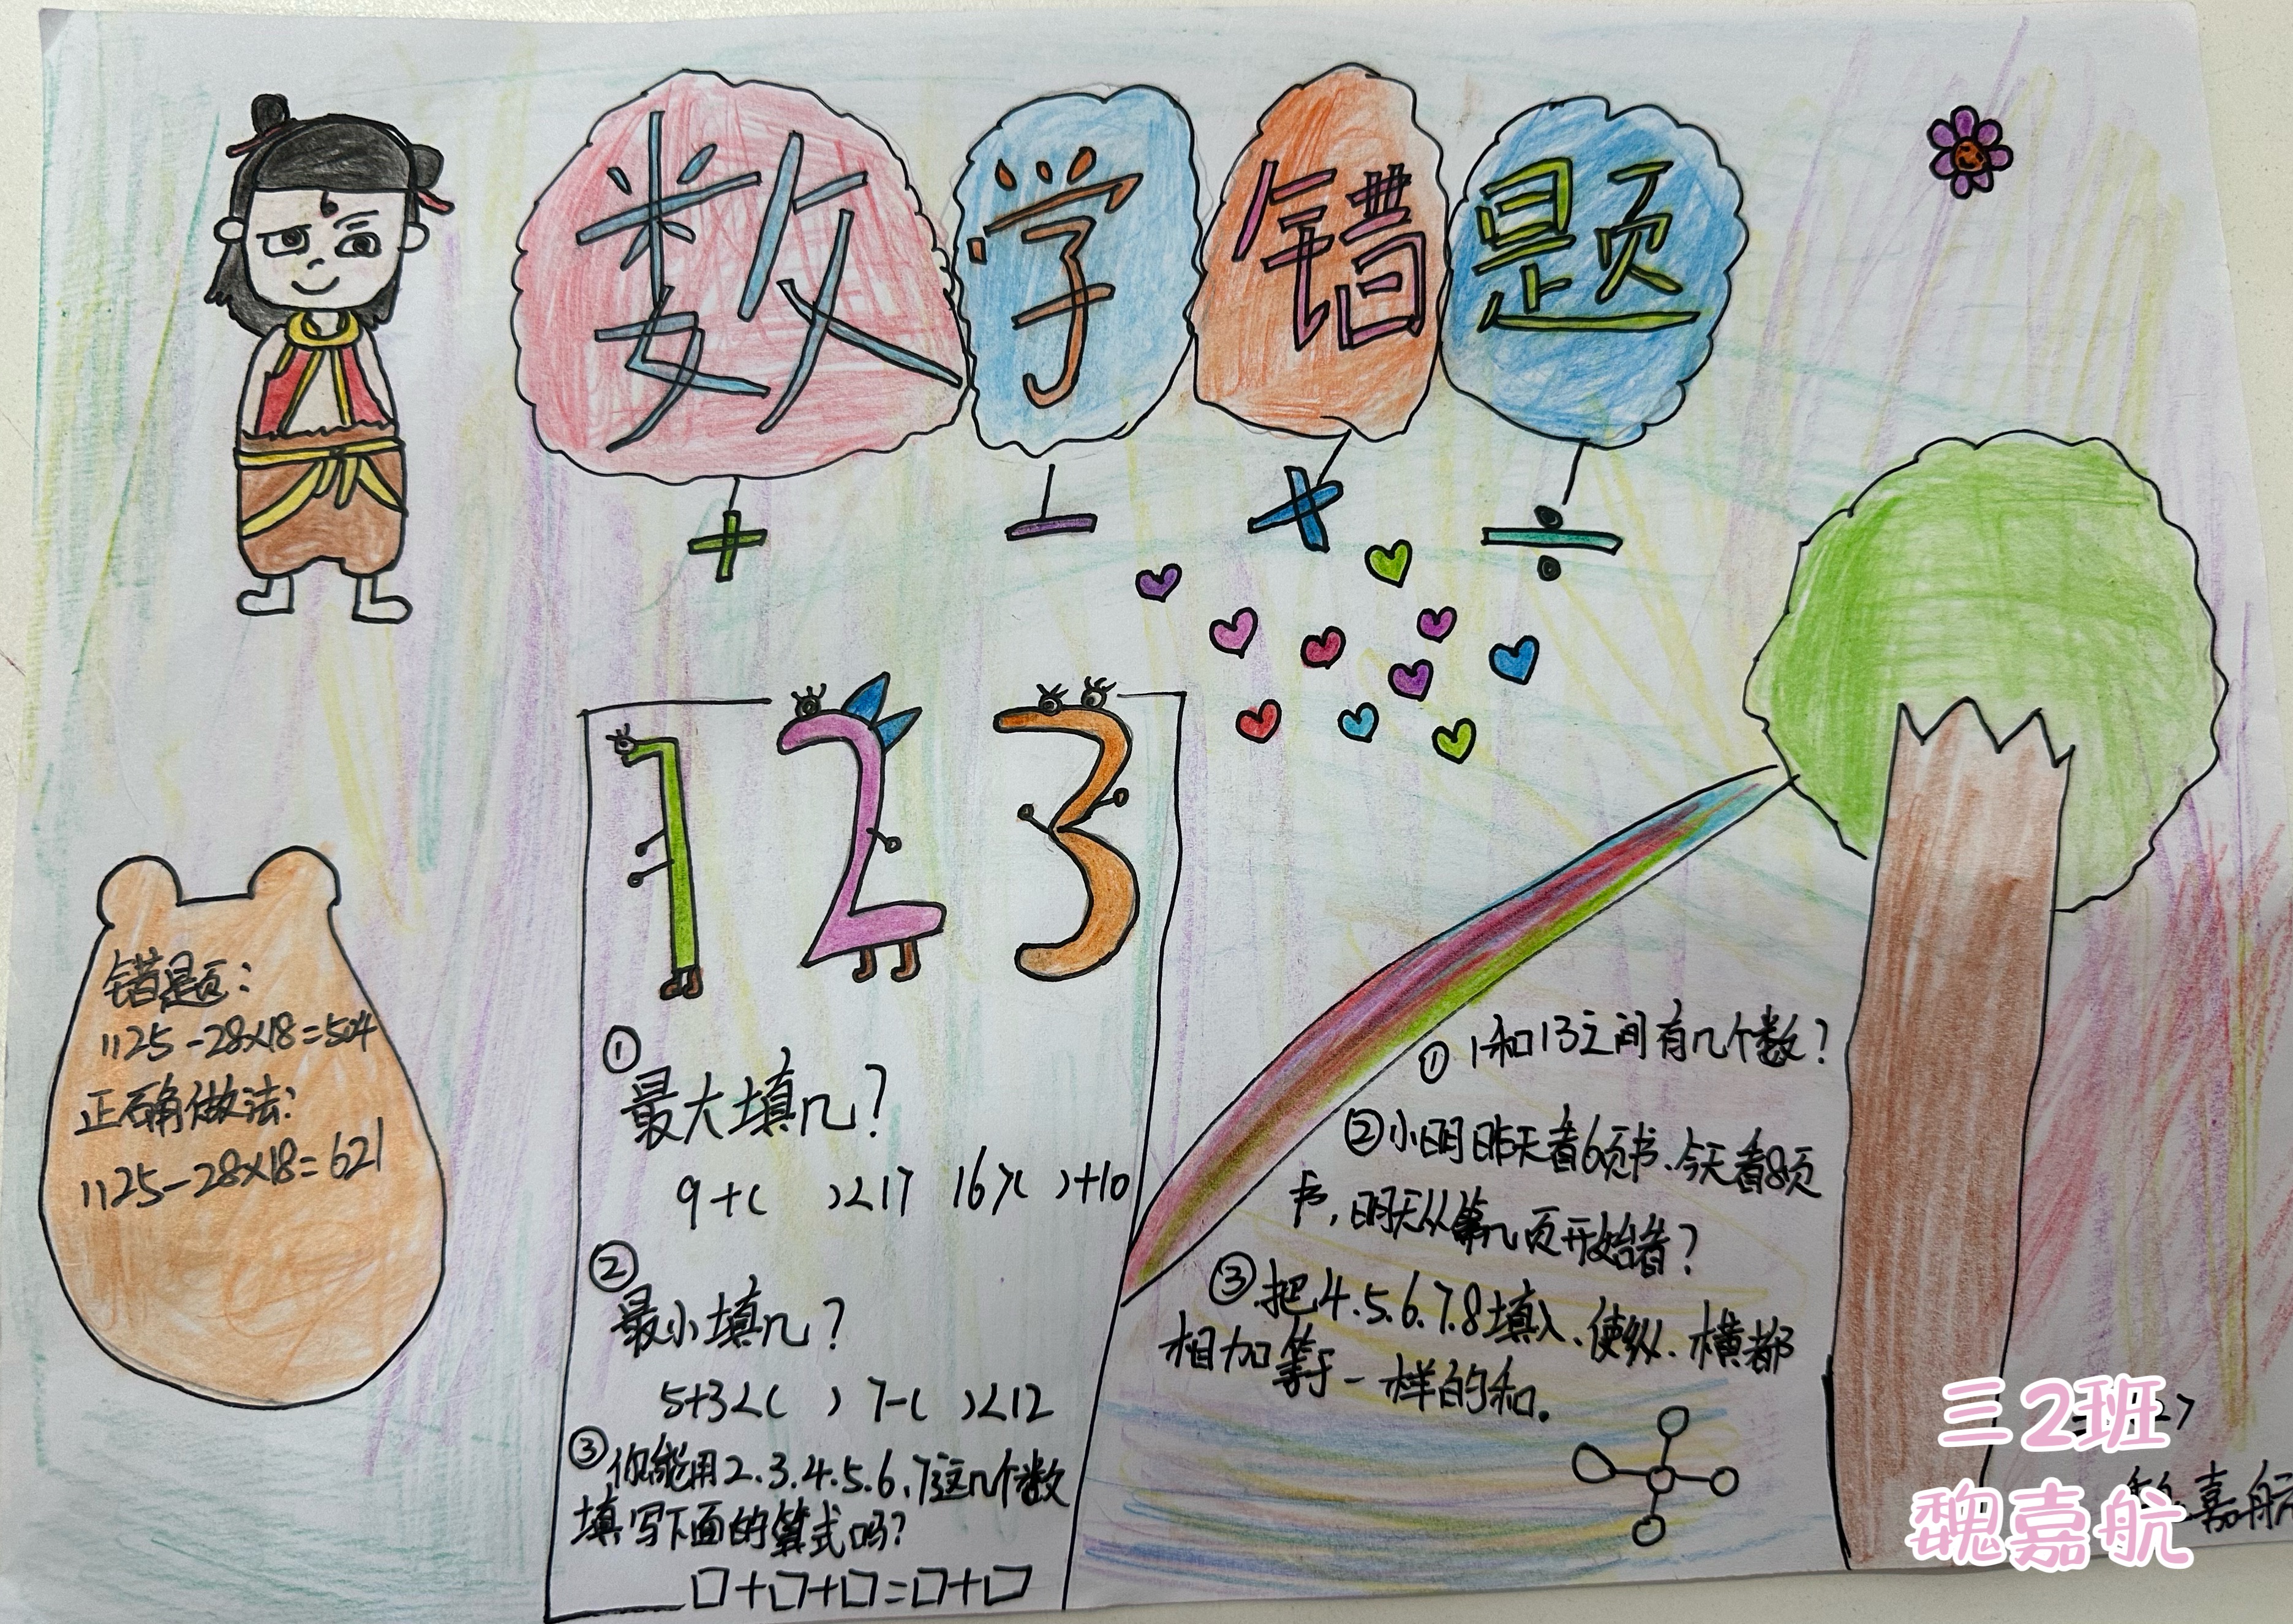 数学错题
+ - × ÷
1 2 3
错题:
1125-28×18=504
正确做法:
1125-28×18=621
①
最大填几?
9+( )<17 16>( )+10
②
最小填几?
5+3<( ) 7-( )<12
③你能用2.3.4.5.6.7这几个数
填写下面的算式吗?
□+□+□=□+□
①1和13之间有几个数?
②小明昨天看6页书、今天看8页
书,明天从第几页开始看?
③把4.5.6.7.8填入、使纵、横都
相加等于一样的和。
三2班
魏嘉航
嘉航